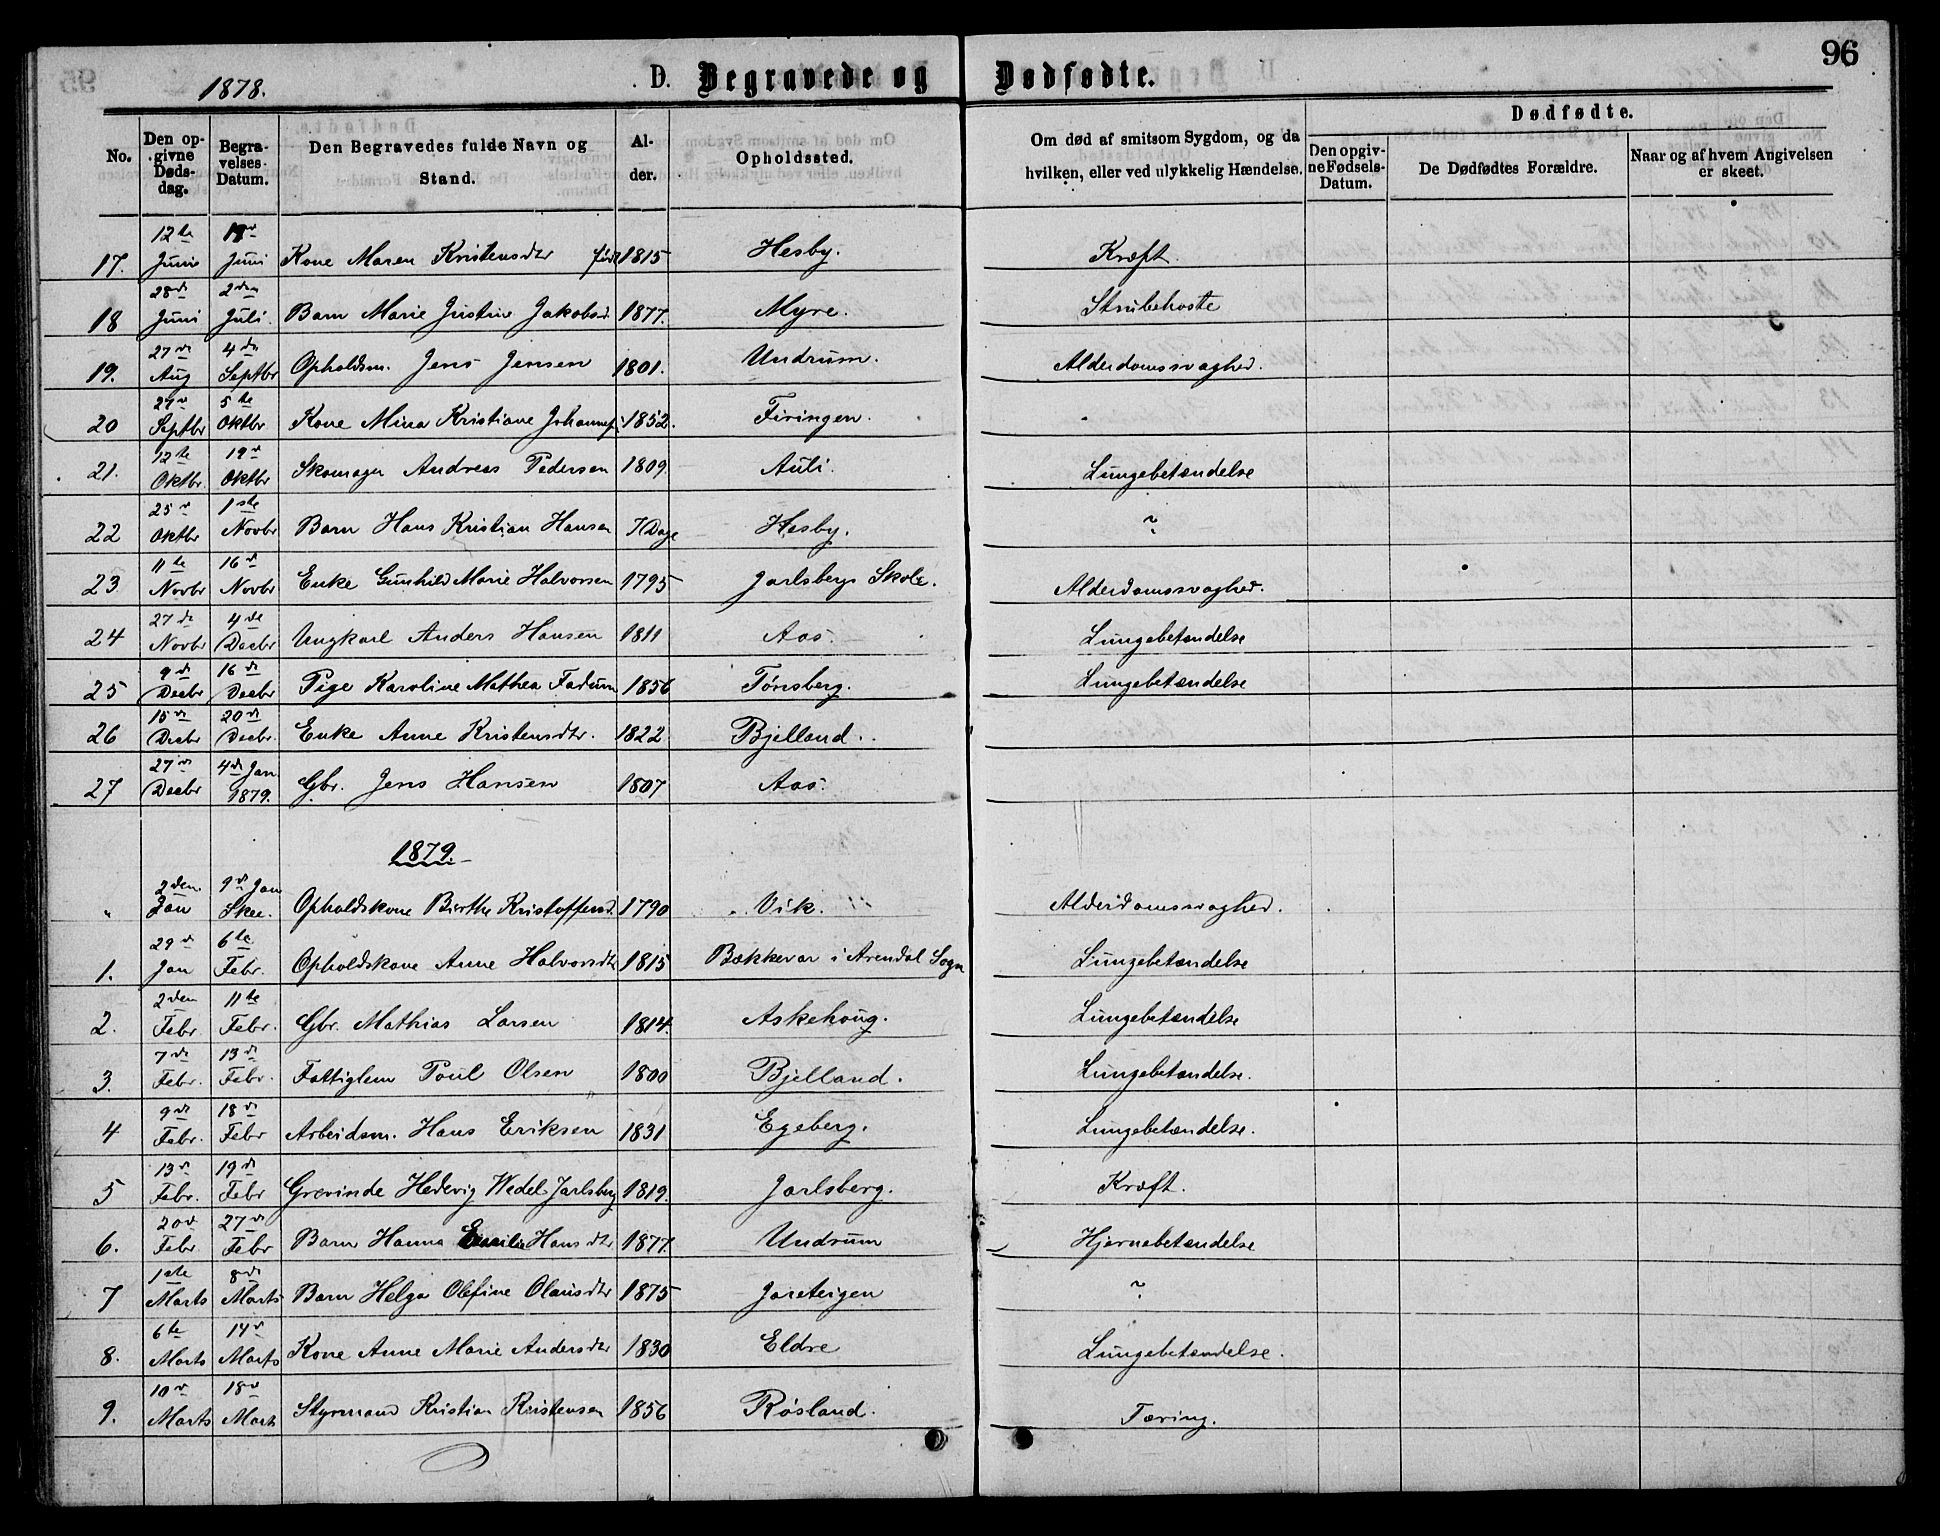 96
1878.
D. Begravede og Dødfødte.
No.
Den opgivne Dødsdag.
Begravelses-Datum.
Den Begravedes fulde Navn og Stand.
Alder.
Opholdssted.
Om død af smitsom Sygdom, og da hvilken, eller ved ulykkelig Hændelse.
Dødfødte.
Den opgivne Fødsels-Datum.
De Dødfødtes Forældre.
Naar og af hvem Angivelsen er skeet.
17. 12te Juni Juni Kone Maren Kristensdtr født 1815 Hesby. Kræft.
18 28de Juni 2den Juli. Barn Marie Justine Jakobsd. 1877. Myre. Strubehoste
19. 27de Aug 4de Septbr Opholdsm. Jens Jensen 1801. Undrum. Alderdomssvaghed.
20 Septbr 5te Oktbr Kone Mina Kristiane 1852. Firingen.
21. 12te Oktbr. 19de Oktbr Skomager Andreas Pedersen 1809. Auli. Lungebetændelse
22 25de Oktbr 1ste Novbr Barn Hans Kristian Hansen 7 Dage Hesby. ?
23 11te Novbr 16de Novbr Enke Gunhild Marie Halvorsen 1795 Jarlsbergs Skole. Alderdomssvaghed.
24 27de Novbr 4de Decbr Ungkarl Anders Hansen 1811 Aas. Lungebetændelse
25 9de Decbr 16de Decbr Pige Karoline Mathea Fadum 1856 Tønsberg. Lungebetændelse
26 15de Decbr 20de Decbr. Enke Anne Kristensdtr. 1822 Bjelland.
27 27de Decbr 4de Jan 1879. Gbr. Jens Hansen 1807 Aas.
1879.
" 2den Jan 9de Jan Skee. Opholdskone Birthe Kristoffersd. 1790 Vik. Alderdomssvaghed.
1. 29de Jan 6te Febr. Opholdskone Anne Halvorsdtr 1815 Bækkevar i Arendal Sogn Lungebetændelse
2. 2den Febr 11te Febr. Gbr. Mathias Larsen 1814. Askehoug. Lungebetændelse
3. 7de Febr. 13de Febr. Fattiglem Poul Olsen 1800 Bjelland. Lungebetændelse.
4 9de Febr. 18de Febr Arbeidsm. Hans Eriksen 1831 Egeberg. Lungebetændelse.
5 13de Febr. 19de Febr Grevinde Hedevig Wedel-Jarlsberg 1819. Jarlsberg. Kræft.
6. 20de Febr. 27de Febr Barn Hanna Emilie Hansdtr 1877. Undrum Hjernebetændelse
7 1ste Marts 8de Marts Barn Helga Olefine Olausdtr 1875 Jareteigen ?
8. 6te Marts 14de Marts Kone Anne Marie Andersdtr 1830 Eldre Lungebetændelse.
9. 10de Marts 18de Marts Styrmand Kristian Kristensen 1856 Røsland. Tæring.